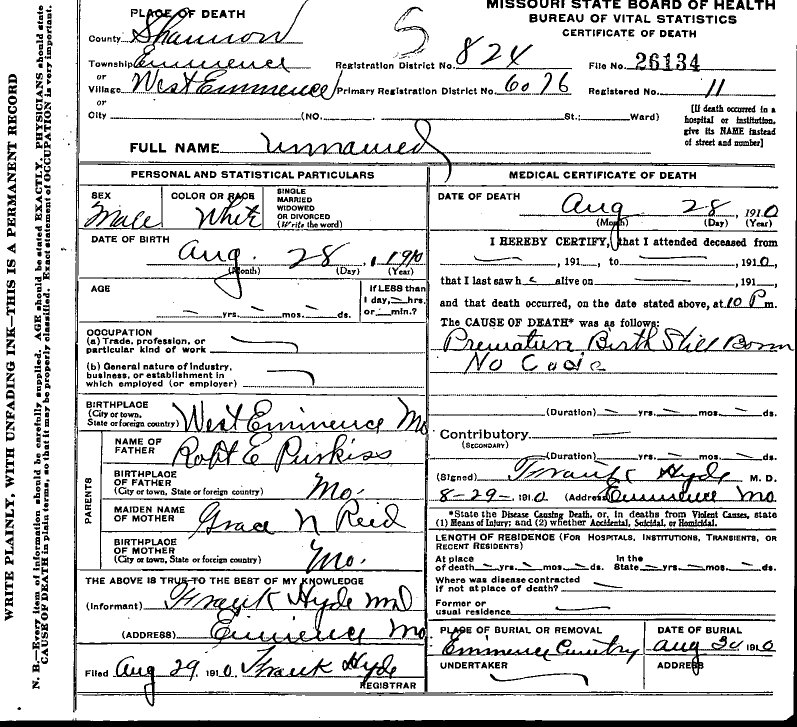 MISSOURI STATE BOARD OF HEALTH
BUREAU OF VITAL STATISTICS
CERTIFICATE OF DEATH
PLACE OF DEATH
County Shannon
Township Eminence
or
Village West Eminence
or
City (NO. St.; Ward)
5
Registration District No. 824 File No. 26134
Primary Registration District No. 6076 Registered No. 11
[If death occurred in a
hospital or institution,
give its NAME instead
of street and number]
FULL NAME unnamed
PERSONAL AND STATISTICAL PARTICULARS
SEX
Male
COLOR OR RACE
White
SINGLE
MARRIED
WIDOWED
OR DIVORCED
(Write the word)
DATE OF BIRTH
Aug. 28, 1910
(Month) (Day) (Year)
AGE
yrs. mos. ds.
If LESS than
1 day, hrs.
or min.?
OCCUPATION
(a) Trade, profession, or
particular kind of work
(b) General nature of industry,
business, or establishment in
which employed (or employer)
BIRTHPLACE
(City or town,
State or foreign country) West Eminence Mo
PARENTS
NAME OF
FATHER Robt E Purkiss
BIRTHPLACE
OF FATHER
(City or town, State or foreign country) Mo.
MAIDEN NAME
OF MOTHER Grace N Reid
BIRTHPLACE
OF MOTHER
(City or town, State or foreign country) Mo.
THE ABOVE IS TRUE TO THE BEST OF MY KNOWLEDGE
(Informant) Frank Hyde MD
(ADDRESS) Eminence Mo
Filed Aug 29, 1910 Frank Hyde
REGISTRAR
MEDICAL CERTIFICATE OF DEATH
DATE OF DEATH
Aug 28, 1910
(Month) (Day) (Year)
I HEREBY CERTIFY, that I attended deceased from
, 191 , to , 1910,
that I last saw h alive on , 191 ,
and that death occurred, on the date stated above, at 10 P m.
The CAUSE OF DEATH* was as follows:
Premature Birth Still Born
No
(Duration) yrs. mos. ds.
Contributory
(SECONDARY)
(Duration) yrs. mos. ds.
(Signed) Frank Hyde M. D.
8-29-1910 (Address) Eminence Mo
*State the Disease Causing Death, or, in deaths from Violent Causes, state
(1) Means of Injury; and (2) whether Accidental, Suicidal, or Homicidal.
LENGTH OF RESIDENCE (For Hospitals, Institutions, Transients, or
Recent Residents)
At place In the
of death yrs. mos. ds. State yrs. mos. ds.
Where was disease contracted
if not at place of death?
Former or
usual residence
PLACE OF BURIAL OR REMOVAL
DATE OF BURIAL
Aug 1910
UNDERTAKER
ADDRESS
WRITE PLAINLY, WITH UNFADING INK—THIS IS A PERMANENT RECORD
N. B.—Every item of information should be carefully supplied. AGE should be stated EXACTLY. PHYSICIANS should state
CAUSE OF DEATH in plain terms, so that it may be properly classified. Exact statement of OCCUPATION is very important.